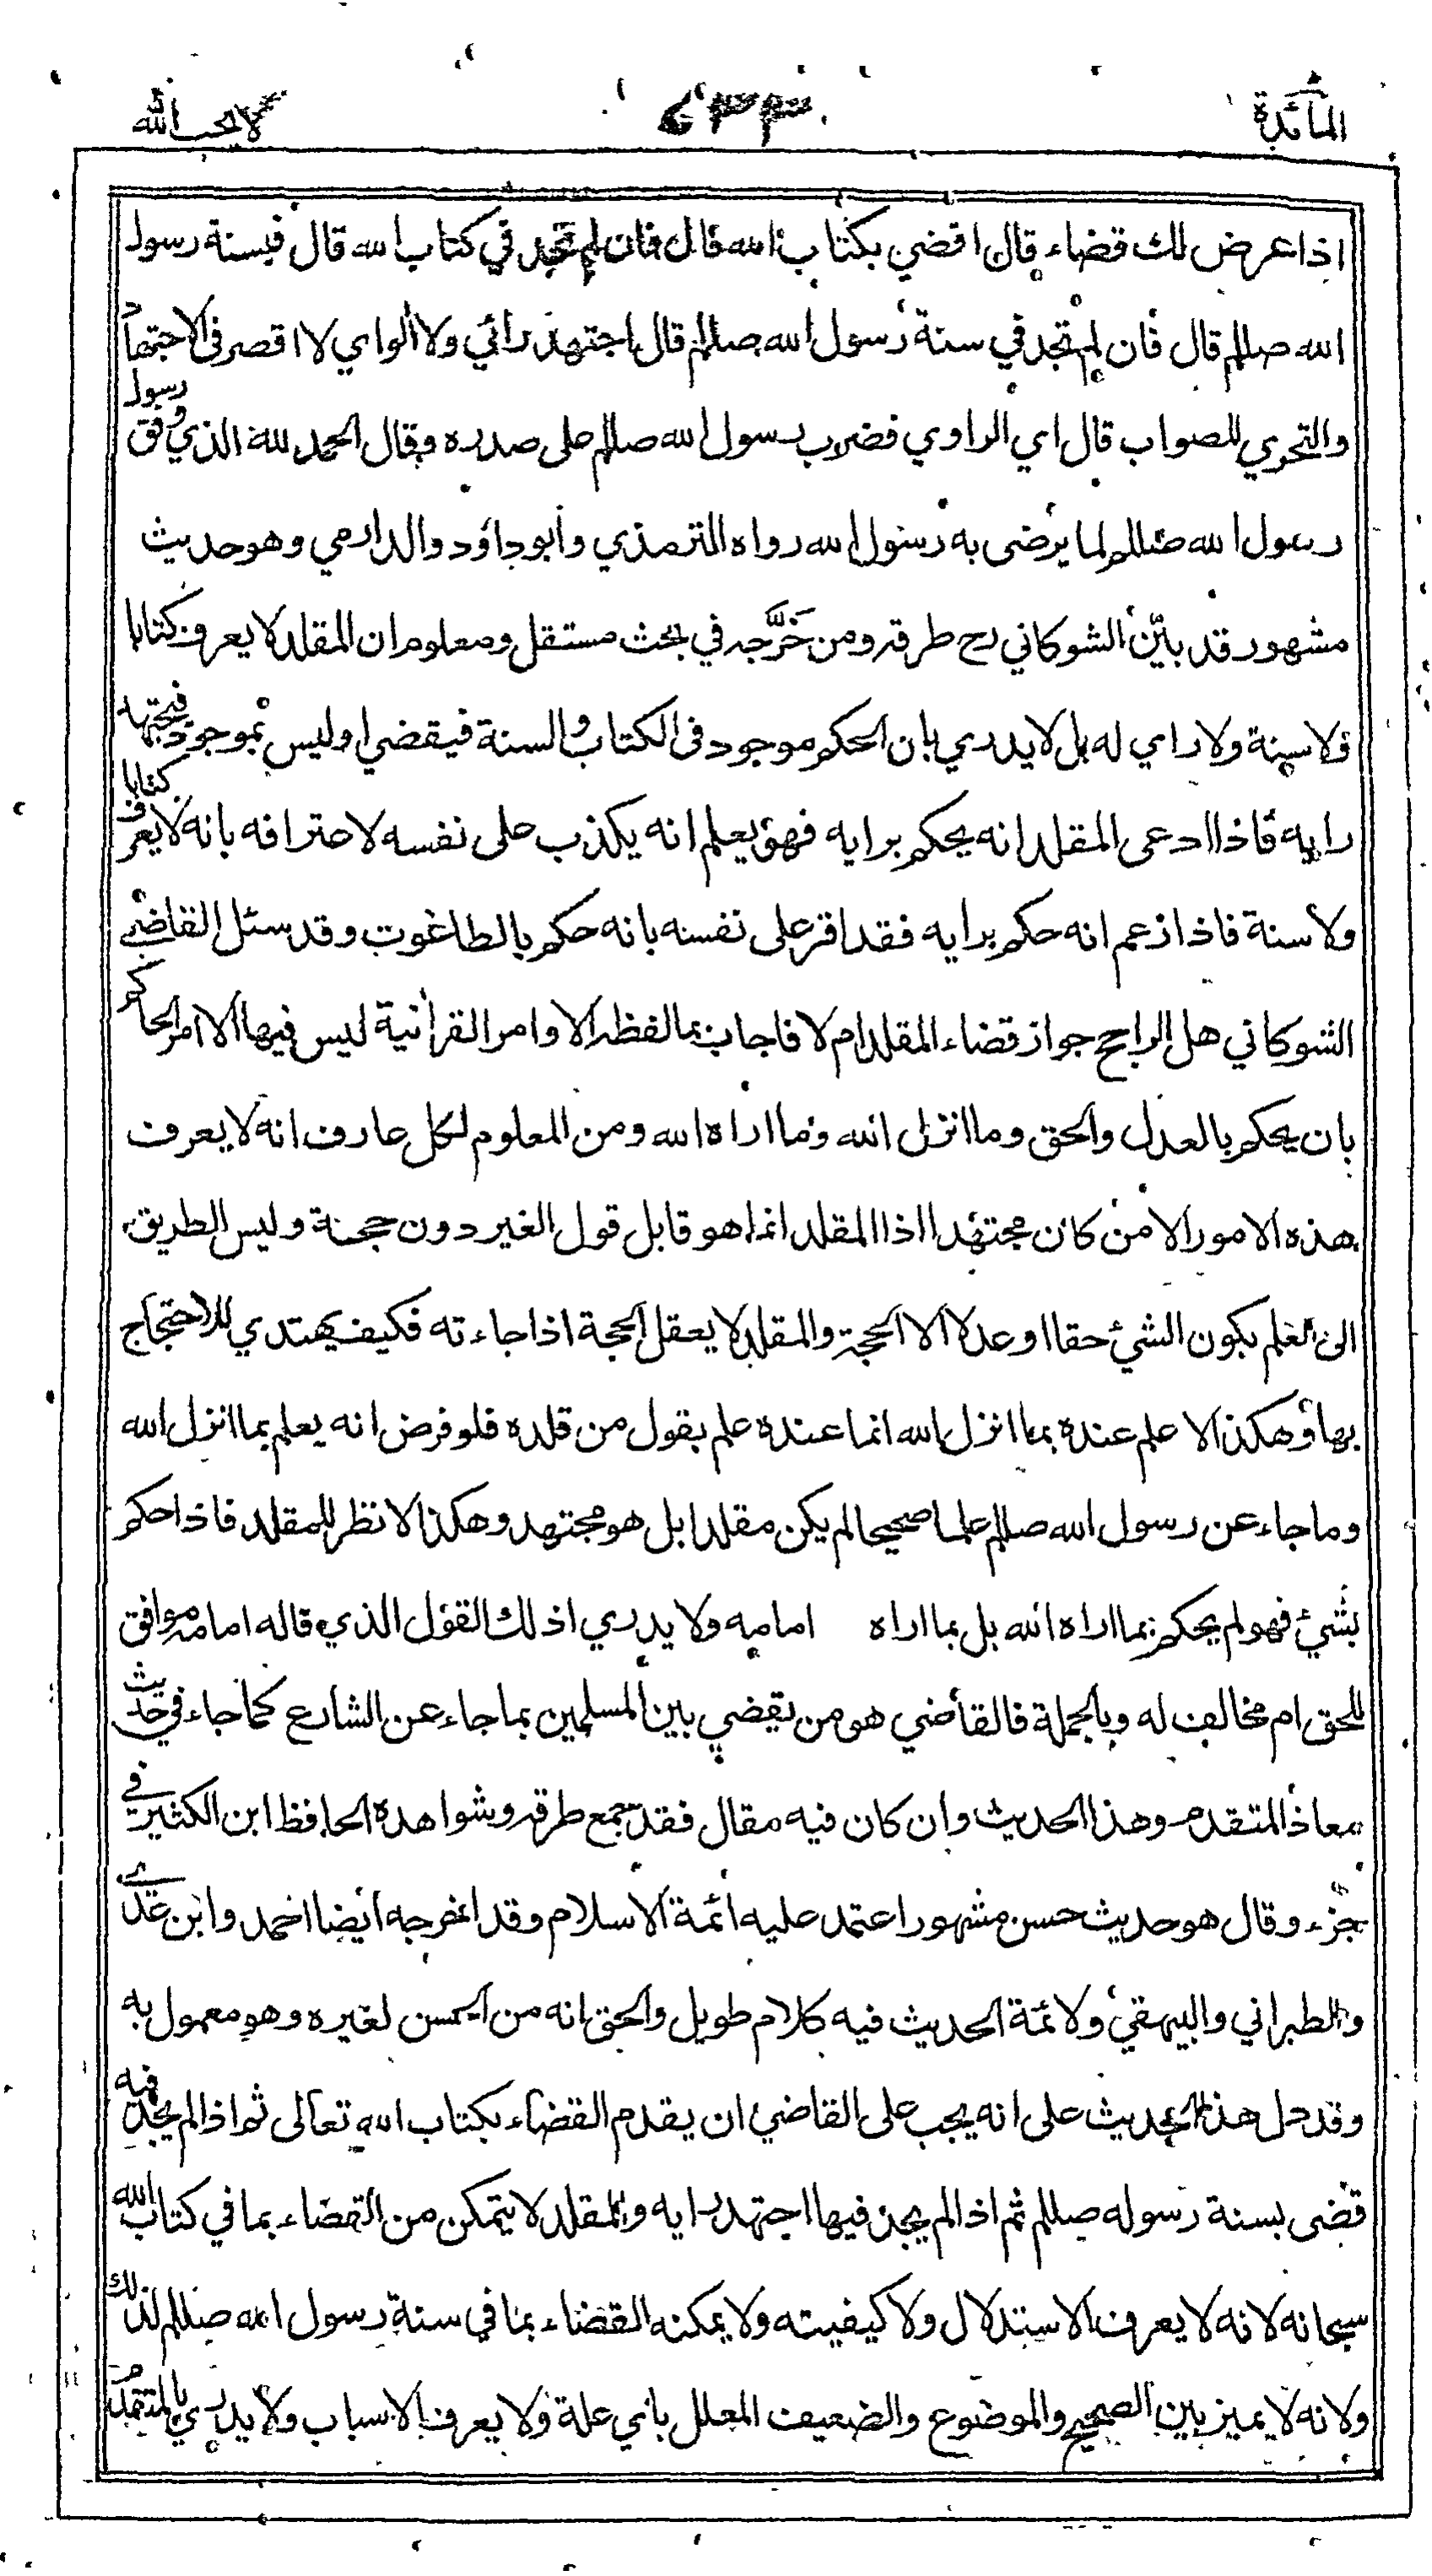 المائدة ٦٣٣ لا يحب الله
اذا عرض لك قضاء قال اقضي بكتاب الله قال فان لم تجد في كتاب الله قال فبسنة رسول
الله صللم قال فان لم تجد في سنة رسول الله صللم قال اجتهد رائي ولا ألواي لا اقصر فى الاجتهاد
والتحري للصواب قال اي الراوي فضرب رسول الله صللم على صدره وقال الحمد لله الذي وفق رسول
رسول الله صللم لما يرضى به رسول الله رواه الترمذي وأبو داؤد والدارمي وهو حديث
مشهور قد بيّن الشوكاني رح طرقه ومن خَرَّجه في بحث مستقل ومعلوم ان المقلد لا يعرف كتابا
ولا سنة ولا راي له بل لا يدري بان الحكم موجود فى الكتاب والسنة فيقضي او ليس بموجود فيجتهد
رايه فاذا ادعى المقلد انه يحكم برايه فهو يعلم انه يكذب على نفسه لاعترافه بانه لا يعرف كتابا
ولا سنة فاذا زعم انه حكم برايه فقد اقر على نفسه بانه حكم بالطاغوت وقد سئل القاضي
الشوكاني هل الراجح جواز قضاء المقلد ام لا فاجاب بما لفظه الاوامر القرأنية ليس فيها الا امر الحاكم
بان يحكم بالعدل والحق وما انزل الله وما اراه الله ومن المعلوم لكل عارف انه لا يعرف
هذه الامور الا من كان مجتهدا اذا المقلد انما هو قابل قول الغير دون حجة وليس الطريق
الى العلم بكون الشيء حقا او عدلا الا الحجة والمقلد لا يعقل الحجة اذا جاءته فكيف يهتدي للاحتجاج
بها وهكذا لا علم عنده بما انزل الله انما عنده علم بقول من قلده فلو فرض انه يعلم بما انزل الله
وما جاء عن رسول الله صللم علما صحيحا لم يكن مقلدا بل هو مجتهد وهكذا لا نظر للمقلد فاذا حكم
بشيء فهو لم يحكم بما اراه الله بل بما اراه امامه ولا يدري اذلك القول الذي قاله امامه موافق
للحق ام مخالف له وبالجملة فالقاضي هو من يقضي بين المسلمين بما جاء عن الشارع كما جاء في حديث
معاذ المتقدم وهذا الحديث وان كان فيه مقال فقد جمع طرقه وشواهده الحافظ ابن الكثير في
جزء وقال هو حديث حسن مشهور اعتمد عليه ائمة الاسلام وقد اخرجه ايضا احمد وابن عدي
والطبراني والبيهقي ولائمة الحديث فيه كلام طويل والحق انه من الحسن لغيره وهو معمول به
وقد دل هذا الحديث على انه يجب على القاضي ان يقدم القضاء بكتاب الله تعالى ثم اذا لم يجد فيه
قضى بسنة رسوله صللم ثم اذا لم يجد فيها اجتهد رايه والمقلد لا يتمكن من القضاء بما في كتاب الله
سبحانه لانه لا يعرف الاستدلال ولا كيفيته ولا يمكنه القضاء بما في سنة رسول الله صللم لذلك
ولانه لا يميز بين الصحيح والموضوع والضعيف المعلل باي علة ولا يعرف الاسباب ولا يدري بالمتقدم